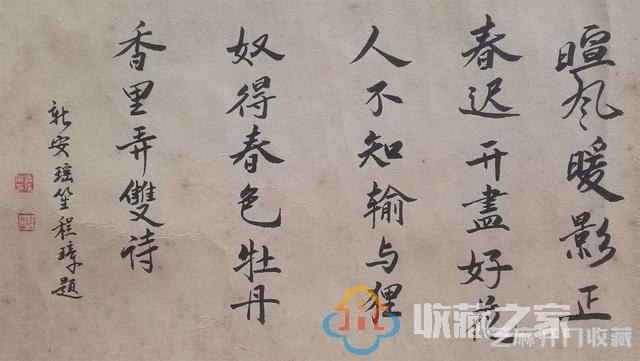 暄风暖影正
春迟开盡好花
人不知输与狸
奴得春色牡丹
香里弄雙诗
新安瑶笙程璋题
收藏之家
芝麻开门收藏